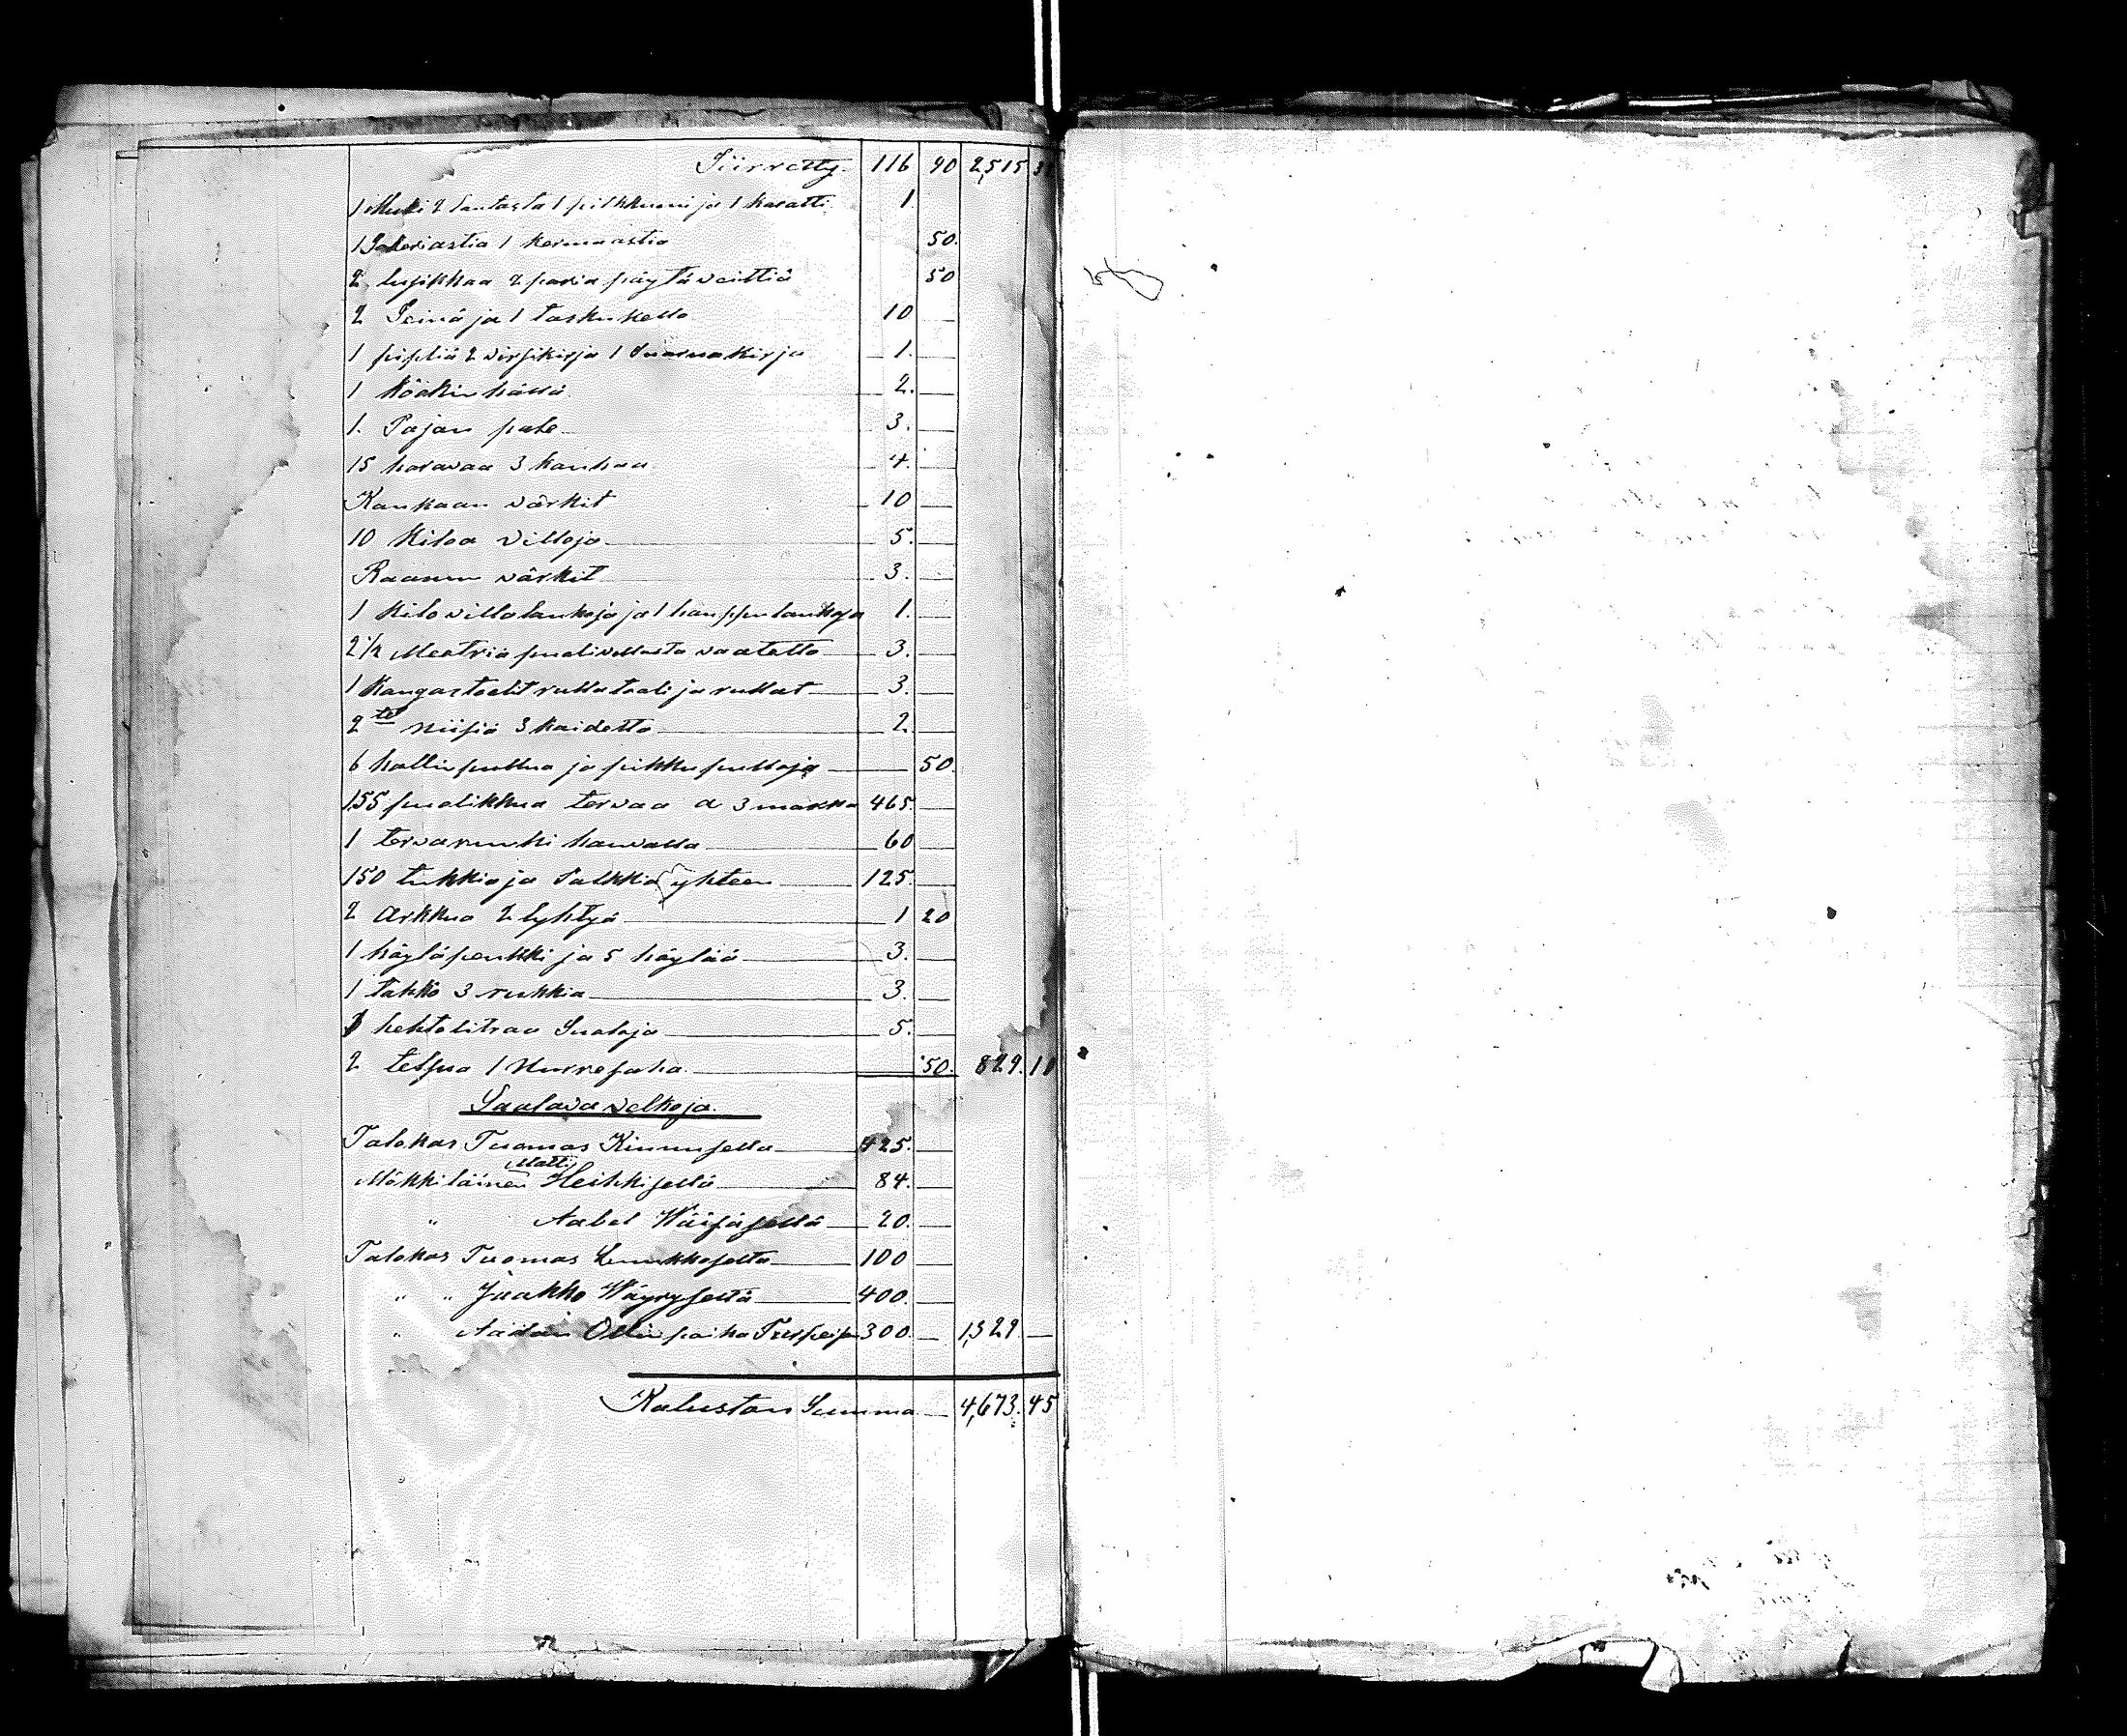 Siirretty. 116 90 2,515 3
1 Muki 2 lautasta 1 pilkkumi ja 1 karatti 1.
1 Sokeriastia 1 kermaastia 50.
2 lusikkaa 2 paria pöytäveittiä 50
2 Seinä ja 1 taskukello 10 —
1 piplia 2 virsikirja 1 Suarnakirja 1. —
1 Köökin hällä 2. —
1. Pajan pale 3. —
15 haravaa 3 kanhaa 4. —
Kankaan värkit 10 —
10 Kiloa villoja 5. —
Raanun värkit 3. —
1 Kilo villalankoja ja 1 hamppulankoja 1. —
2 1/2 Meatriä puolivillasta vaatetta 3. —
1 Kangastoolit rullatooli ja rullat 3. —
2 te niisiä 3 kaidetta 2. —
6 hallinpullua ja pikkupulloja 50.
155 puolikkua tervaa a 3 markka 465. —
1 tervaruuhi haudalla 60 —
150 tukkia ja Palkkia yhteen 125. —
2 Arkkua 2 lyhtyä 1 20
1 höyläpenkki ja 5 höylää 3. —
1 tahko 3 rukkia 3. —
hehtolitraa Suoloja 5. —
2 telsua 1 Nurresaha 50. 829. 10
Saatava velkoja.
Talokas Tuomas Kinnusella 425. —
Matti
Mökkiläinen Heikkisellä 84. —
" Aabel Wäisäsellä 20. —
Talokas Tuomas Leinikkosella 100 —
" " Jaakko Wäyrysellä 400. —
" Aadam Ollin poika 300. — 1,329. —
Kaluston Summa — 4,673. 45